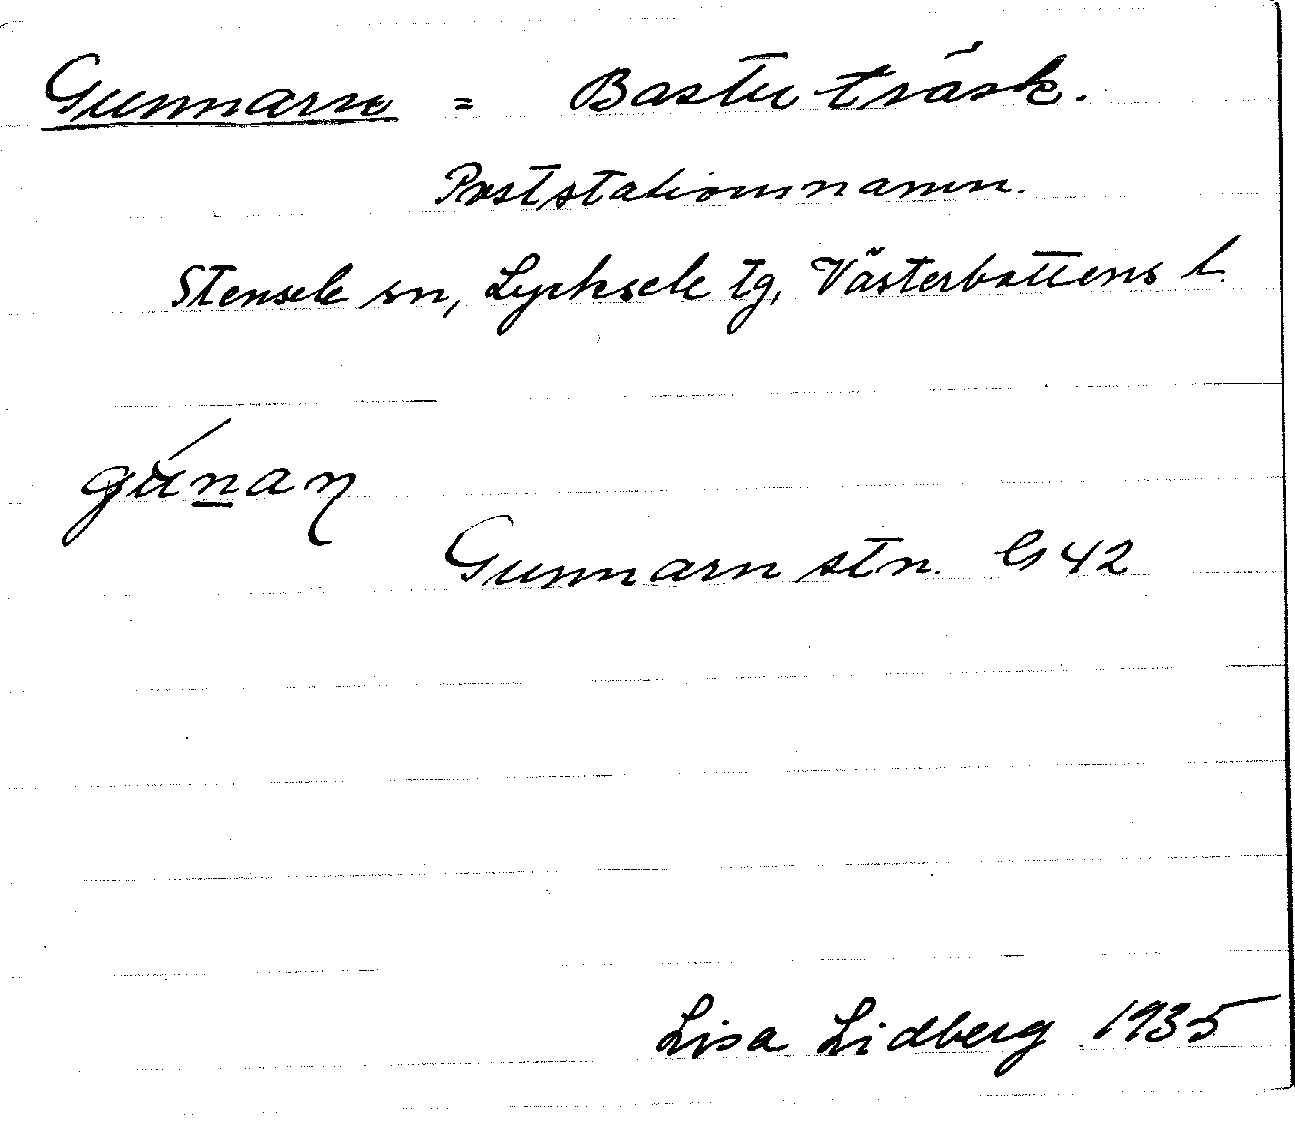 Gunnarn = Bastuträsk.
Poststationsnamn.
Stensele sn, Lycksele tg, Västerbottens l.
gún̲aɳ
Gunnarn stn. G 42
Lisa Lidberg 1935